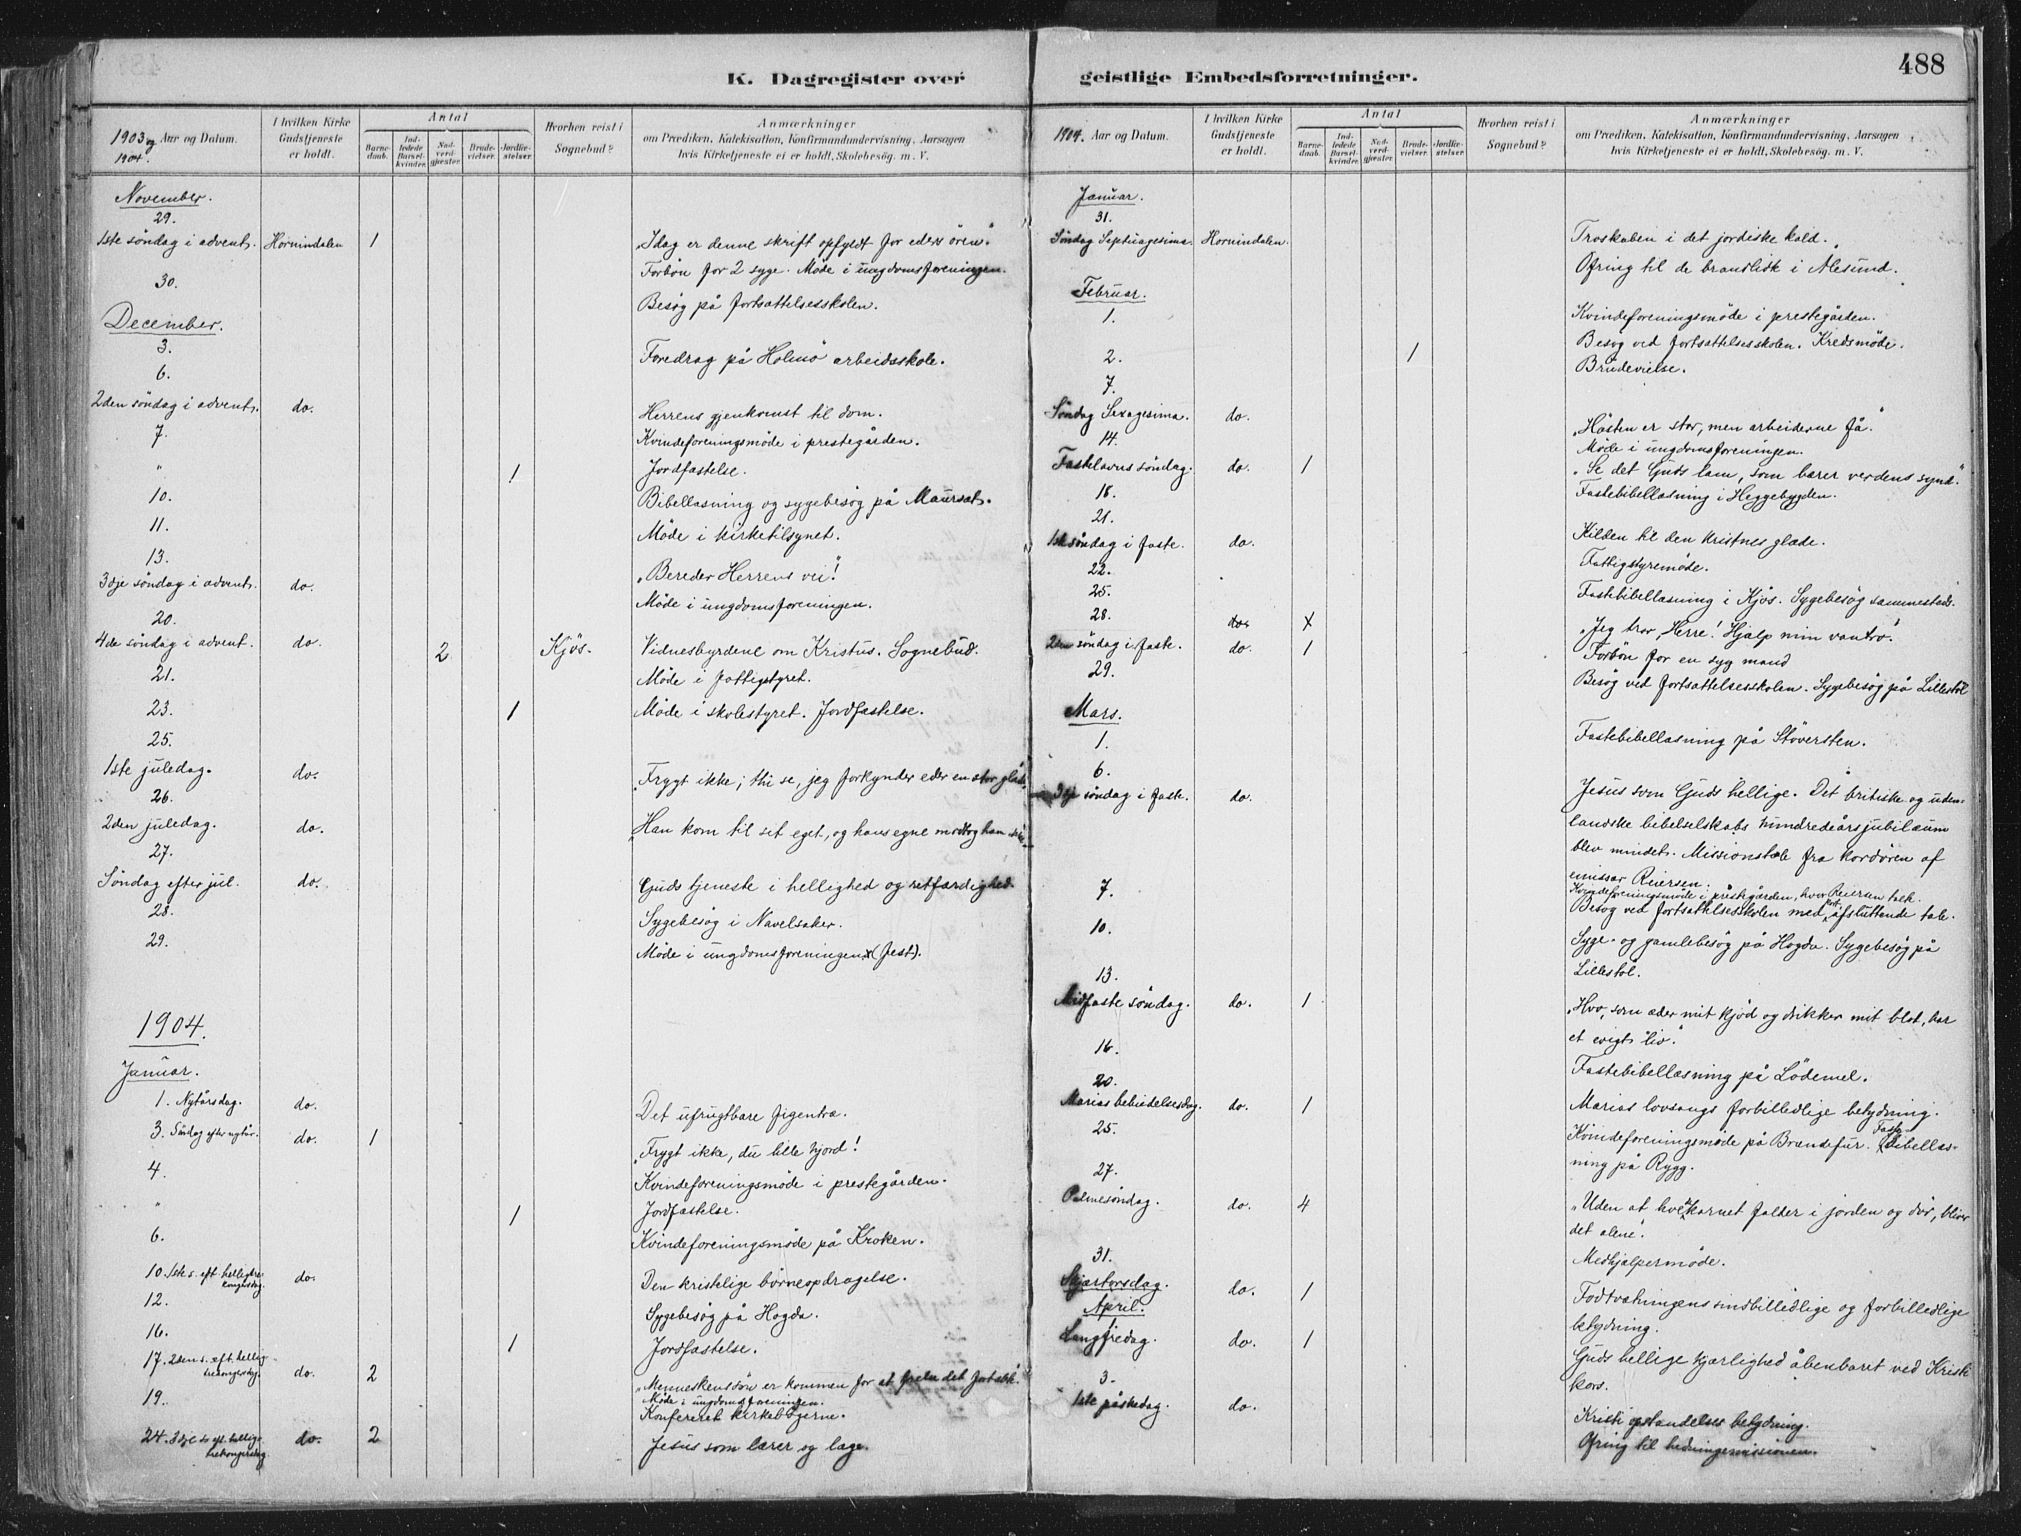 K. Dagregister over
1903 og 1904. Aar og Datum.
I hvilken Kirke Gudstjeneste er holdt.
Antal
Barnedaab.
Indledede Barselkvinder.
Nadverdgjæster.
Brudevielser.
Jordfæstelser.
Hvorhen reist i Sognebud?
Anmærkninger
om Prædiken, Katekisation, Konfirmandundervisning, Aarsagen
hvis Kirketjeneste ei er holdt, Skolebesøg. m. V.
November.
29.
1ste søndag i advent. Hornindalen 1 "Idag er denne skrift opfyldt for eders ören."
Forbön for 2 syge. Møde i ungdomsforeningen.
30.
Besøg på fortsættelsesskolen.
December.
3. Foredrag på Holmö arbeidsskole.
6.
2den søndag i advent. do. Herrens gjenkomst til dom.
7. Kvindeforeningsmøde i prestegården.
" 1 Jordfæstelse.
10. Bibellæsning og sygebesøg på Maurset.
11. Møde i kirketilsynet.
13.
3dje søndag i advent. do. "Bereder Herrens vei!"
Møde i ungdomsforeningen.
20.
4de søndag i advent. do. 2 Kjös. Vidnesbyrdene om Kristus. Sognebud.
21. Møde i fattigstyret.
23. 1 Møde i skolestyret. Jordfæstelse.
25.
1ste juledag. do. "Frygt ikke; thi se, jeg forkynder eder en stor glæde"
26.
2den juledag. do. "Han kom til sit eget, og hans egne modtog ham ikke"
27.
Søndag efter jul. do. Guds tjeneste i hellighed og retfærdighed.
28. Sygebesøg i Navelsaker.
29. Møde i ungdomsforeningen (fest).
1904.
Januar.
1. Nytårsdag. do. Det ufrugtbare figentræ.
3. Søndag efter nytår. do. 1 "Frygt ikke, du lille hjord!
4. Kvindeforeningsmøde i prestegården.
" 1 Jordfæstelse.
6. Kvindeforeningsmøde på Kroken.
10. 1ste s. eft. helligtrekongersdag. do. Den kristelige børneopdragelse.
12. Sygebesøg på Hogda.
16. 1 Jordfæstelse.
17. 2den s. eft. helligtrekongersdag. do. 2 "Menneskens søn er kommen for at frelse det fortabte.
Møde i ungdomsforeningen.
19. Konfereret kirkebøgerne.
24. 3dje s. eft. helligtrekongersdag do. 2 Jesus som lærer og læge.
geistlige Embedsforretninger.
488
1904. Aar og Datum.
I hvilken Kirke Gudstjeneste er holdt.
Antal
Barnedaab.
Indledede Barselkvinder.
Nadverdgjæster.
Brudevielser.
Jordfæstelser.
Hvorhen reist i Sognebud?
Anmærkninger
om Prædiken, Katekisation, Konfirmandundervisning, Aarsagen
hvis Kirketjeneste ei er holdt, Skolebesøg. m. V.
Januar.
31.
Søndag Septuagesima. Hornindalen. Troskaben i det jordiske kald.
Ofring til de brandlidte i Ålesund.
Februar.
1. Kvindeforeningsmøde i prestegården.
Besøg ved fortsættelsesskolen. Kredsmøde.
2. 1 Brudevielse.
7.
Søndag Sexagesima. do. "Høsten er stor, men arbeiderne få."
14. Møde i ungdomsforeningen.
Fastelavns søndag. do. 1 "Se det Guds lam, som bærer verdens synd."
18. Fastebibellæsning i Heggebygden.
21.
1ste søndag i faste. do. Kilden til den kristnes glæde.
22. Fattigstyremøde.
25. Fastebibellæsning i Kjös. Sygebesøg sammesteds.
28. do. x
2den søndag i faste. do. 1 "Jeg tror, Herre! Hjælp min vantro."
Forbøn for en syg mand
29. Besøg ved fortsættelsesskolen. Sygebesøg på Lillestöl
Mars.
1. Fastebibellæsning på Støversten.
6.
3dje søndag i faste. do. Jesus som Guds hellige. Det britiske og uden-
landske bibelselskabs hundredeårsjubilæum
blev mindet. Missionstale fra kordøren af
emissær Reiersen.
7. Kvindeforeningsmøde i prestegården, hvor Reiersen talte.
Besøg ved fortsættelsesskolen med kort afsluttende tale.
10. Syge- og gamlebesøg på Hogda. Sygebesøg på
Lillestöl.
13.
Midfaste søndag. do. 1 "Hvo, som æder mit kjød og drikker mit blod, har
et evigt liv."
16. Fastebibellæsning på Lødemel.
20.
Marias bebudelsesdag. do. 1 Marias lovsangs forbilledlige betydning.
25. Kvindeforeningsmøde på Brendefur. Faste-bibellæs-
ning på Rygg.
27.
Palmesøndag. do. 4 "Uden at hvedekornet falder i jorden og dør, bliver
det alene."
31. Medhjælpermøde.
Skjærtorsdag. do. 1 Fodtvætningens sindbilledlige og forbilledlige
betydning.
April.
Langfredag. do. 1 Guds hellige kjærlighed åbenbaret ved Kristi
kors.
3.
1ste påskedag. do. Kristi opstandelses betydning.
Ofring til hedningemissionen.